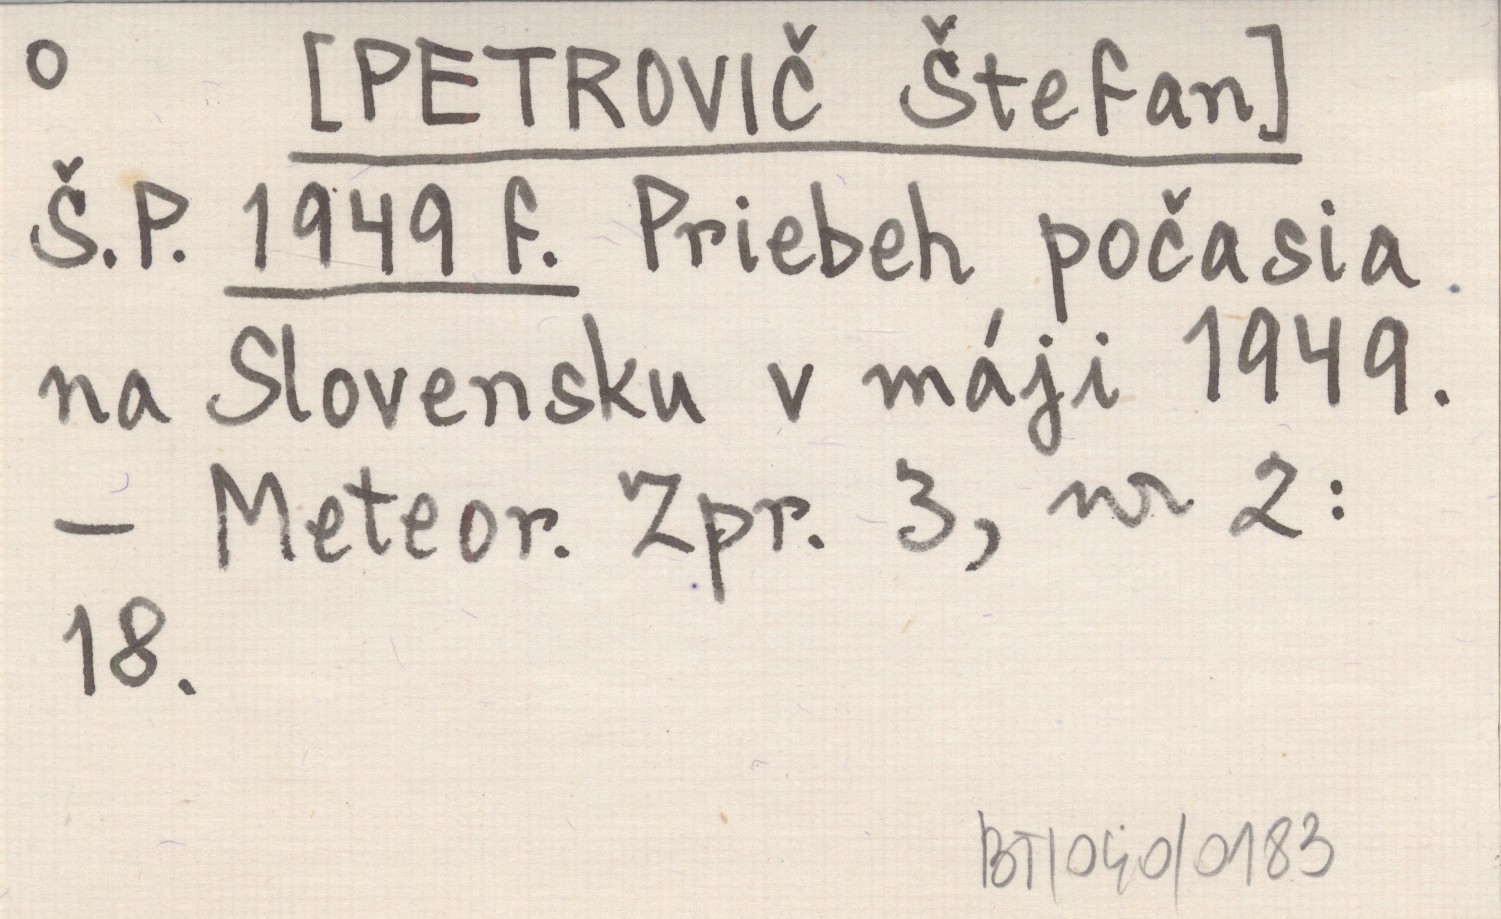 o [PETROVIČ Štefan]
Š.P. 1949 f. Priebeh počasia
na Slovensku v máji 1949.
– Meteor. Zpr. 3, nr 2:
18.
BT/040/0183